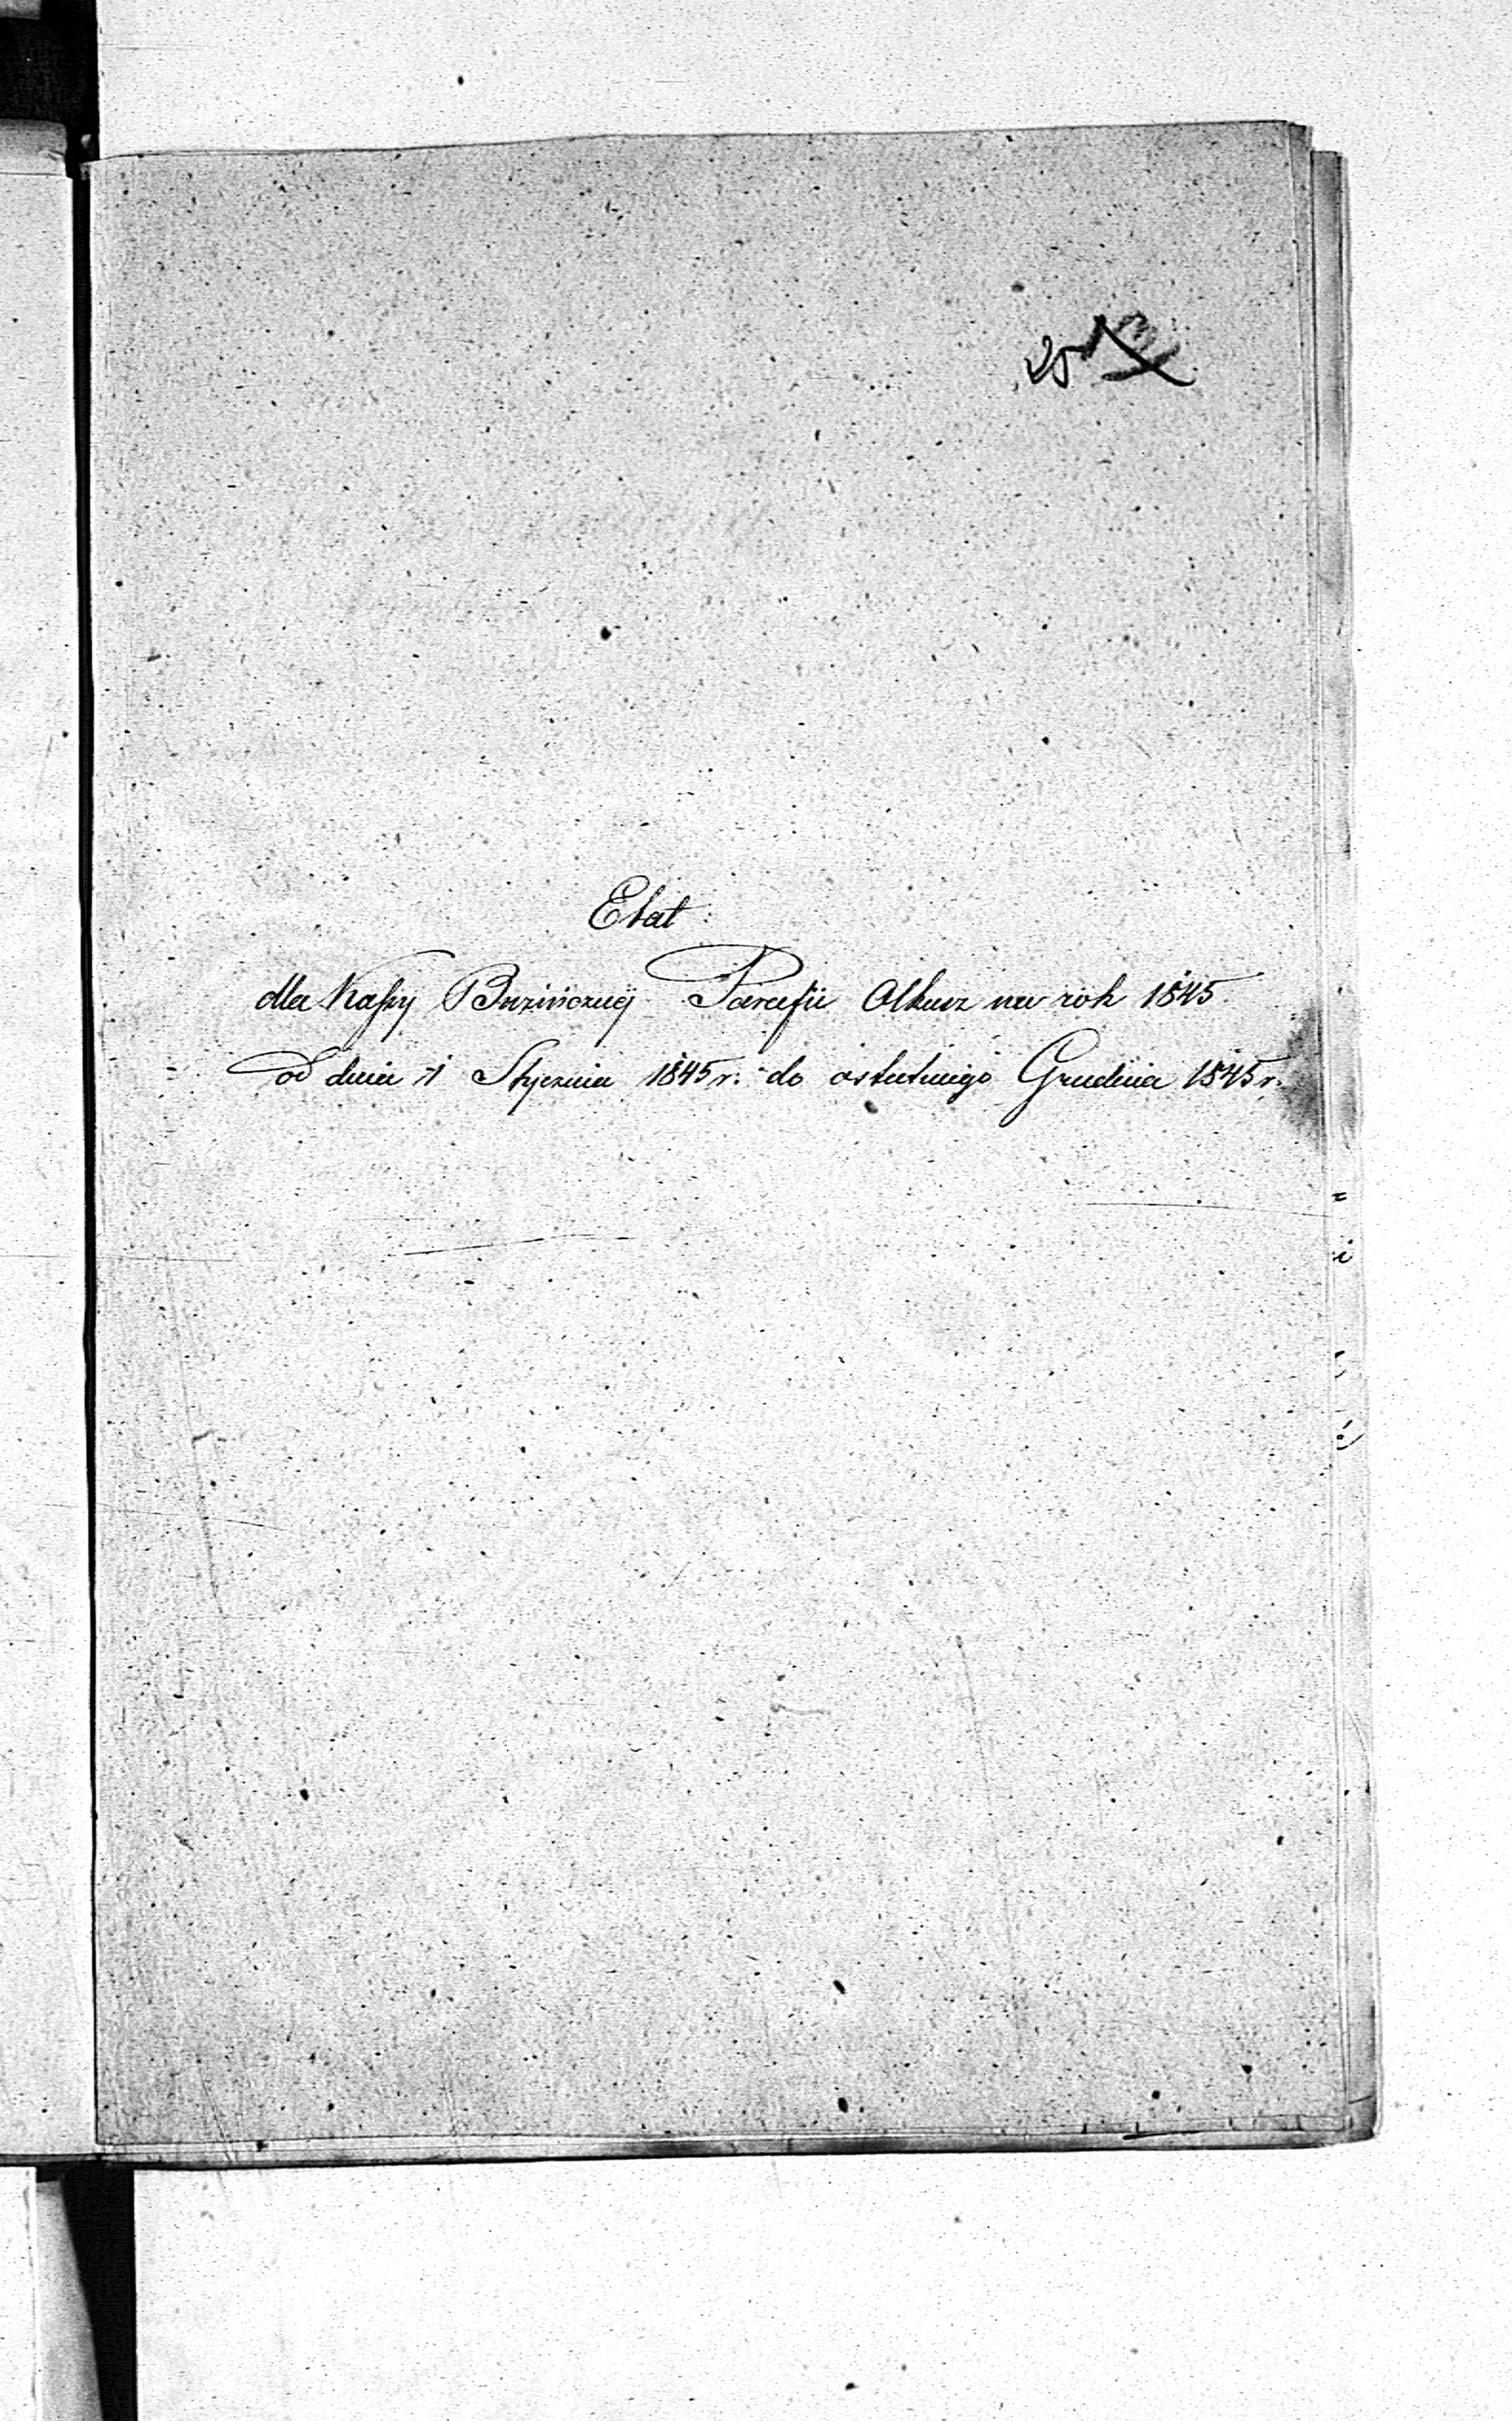 25
Etat
dla Kassy Bużnicznej Parafii Olkusz na rok 1845
od dnia 1 Stycznia 1845 r. do ostatniego Grudnia 1845 r.